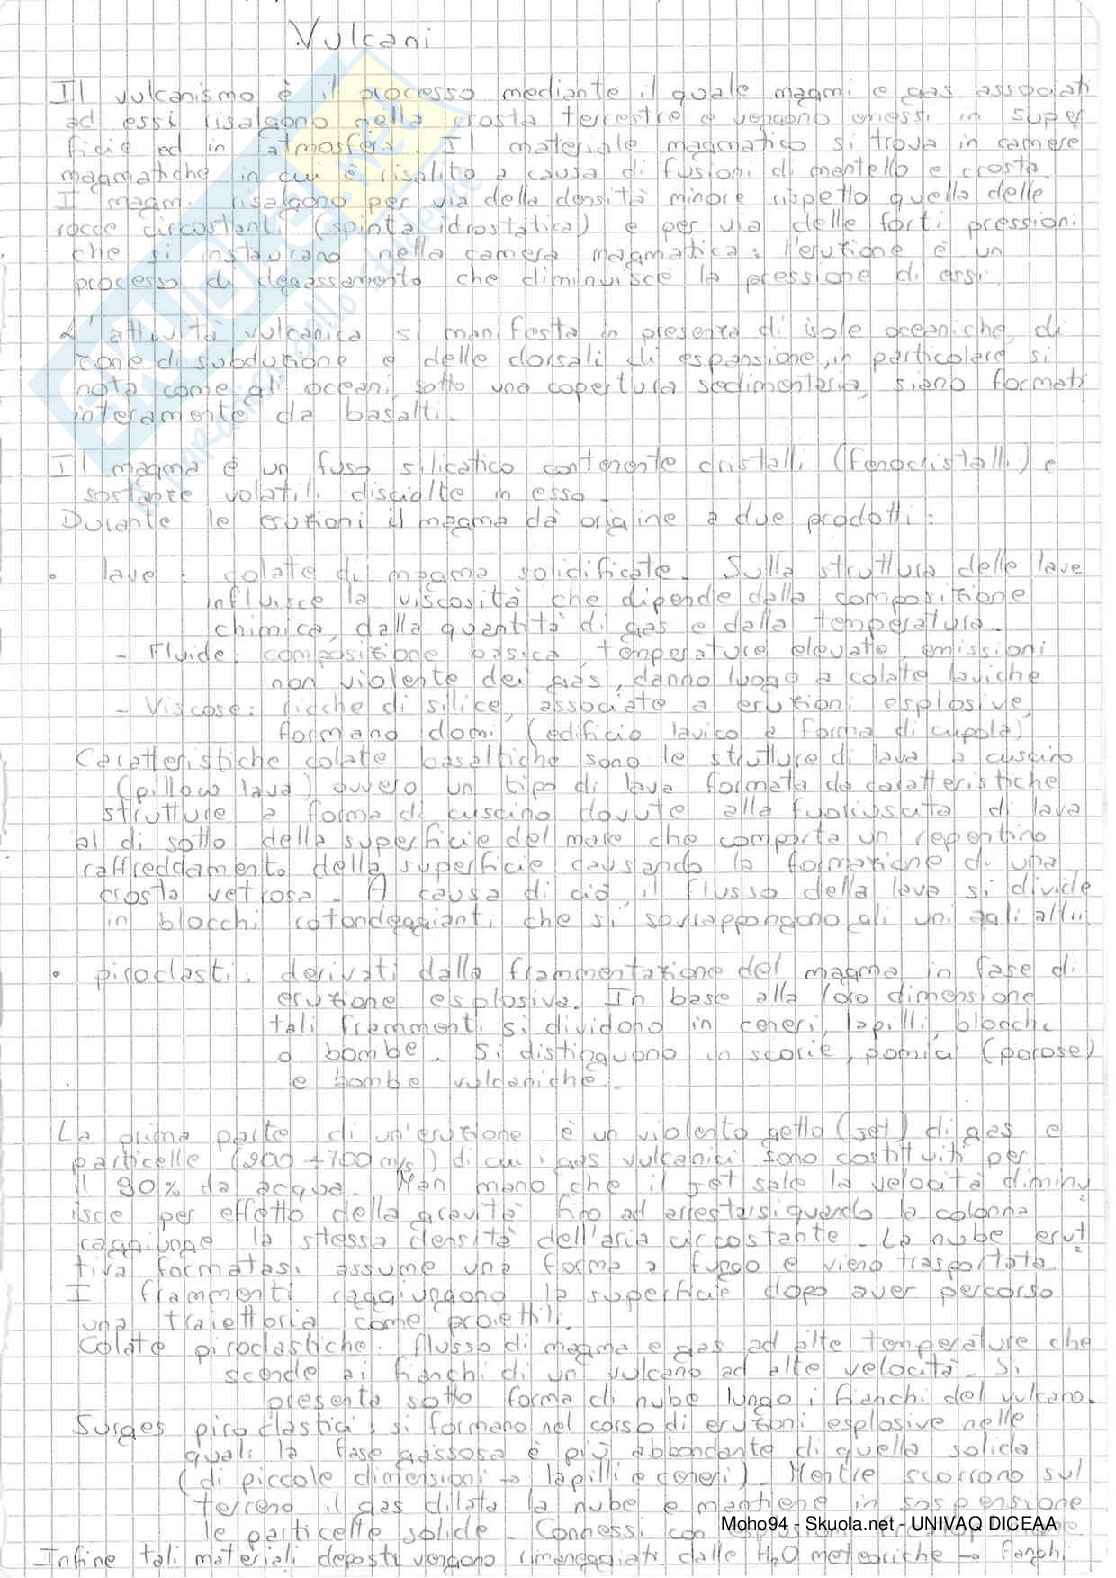 Vulcani
Il vulcanismo è il processo mediante il quale magmi e gas associati
ad essi risalgono nella crosta terrestre e vengono emessi in super
ficie ed in atmosfera. Il materiale magmatico si trova in camere
magmatiche in cui è risalito a causa di fusioni di mantello e crosta.
I magmi risalgono per via della densità minore rispetto quella delle
rocce circostanti (spinta idrostatica) e per via delle forti pressioni
che si instaurano nella camera magmatica: l'eruzione è un
processo di degassamento che diminuisce la pressione di essi.
L'attività vulcanica si manifesta in presenza di isole oceaniche, di
zone di subduzione e delle dorsali di espansione, in particolare si
nota come gli oceani, sotto una copertura sedimentaria, siano formati
interamente da basalti.
Il magma è un fuso silicatico contenente cristalli (fenocristalli) e
sostanze volatili disciolte in esso.
Durante le eruzioni il magma dà origine a due prodotti:
• lave: colate di magma solidificate. Sulla struttura delle lave
influisce la viscosità che dipende dalla composizione
chimica, dalla quantità di gas e dalla temperatura.
- Fluide: composizione basica, temperature elevate, emissioni
non violente dei gas, danno luogo a colate laviche
- Viscose: ricche di silice, associate a eruzioni esplosive,
formano domi (edificio lavico a forma di cupola)
Caratteristiche colate basaltiche sono le strutture di lava a cuscino
(pillow lava) ovvero un tipo di lava formata da caratteristiche
strutture a forma di cuscino dovute alla fuoriuscita di lava
al di sotto della superficie del mare che comporta un repentino
raffreddamento della superficie causando la formazione di una
crosta vetrosa. A causa di ciò, il flusso della lava si divide
in blocchi rotondeggianti che si sovrappongono gli uni agli altri
• piroclasti: derivati dalla frammentazione del magma in fase di
eruzione esplosiva. In base alla loro dimensione
tali frammenti si dividono in ceneri, lapilli, blocchi
o bombe. Si distinguono in scorie, pomici (porose)
e bombe vulcaniche.
La prima parte di un'eruzione è un violento getto (jet) di gas e
particelle m/s) di cui i gas vulcanici sono costituiti per
il 90% da acqua. Man mano che il jet sale la velocità diminu
isce per effetto della gravità fino ad arrestarsi quando la colonna
raggiunge la stessa densità dell'aria circostante. La nube erut
tiva formatasi assume una forma a fungo e viene trasportata.
I frammenti raggiungono la superficie dopo aver percorso
una traiettoria come proiettili.
Colate piroclastiche: flusso di magma e gas ad alte temperature che
scende ai fianchi di un vulcano ad alte velocità. Si
presenta sotto forma di nube lungo i fianchi del vulcano.
Surges piroclastici: si formano nel corso di eruzioni esplosive nelle
quali la fase gassosa è più abbondante di quella solida
(di piccole dimensioni → lapilli e ceneri). Mentre scorrono sul
terreno il gas dilata la nube e mantiene in sospensione
le particelle solide. Connessi con
Moho94 - Skuola.net - UNIVAQ DICEAA
Infine tali materiali deposti vengono rimaneggiati dalle H₂O meteoriche → fanghi